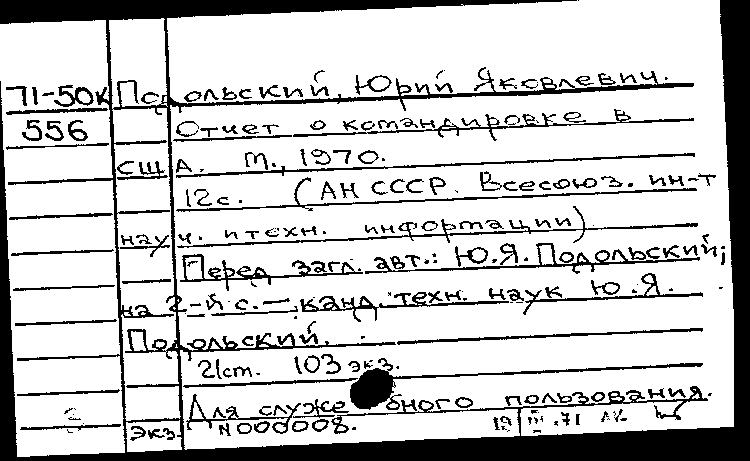 71-50К Подольский, Юрий Яковлевич.
556 Отчет о командировке в
США. М., 1970.
12с. (АН СССР. Всесоюз. ин-т
науч. и техн. информации)
Перед загл. авт.: Ю.Я. Подольский;
на 2-й с. —, канд. техн. наук Ю.Я.
Подольский.
21см. 103 экз.
Для служебного пользования.
Экз. N000008.
19/III.71